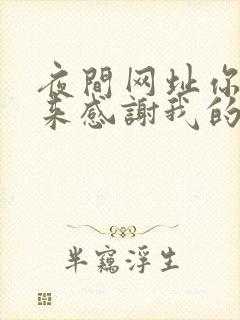 夜間网址你
来感謝我的
半竊浮生